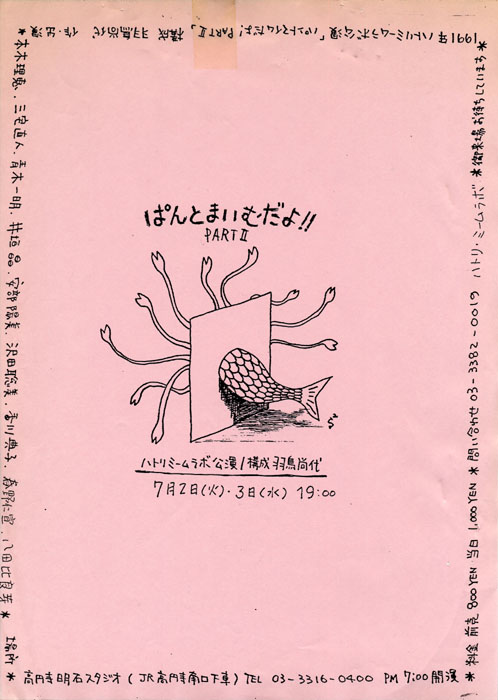 ぱんとまいむだよ!!
PART II
ハトリミームラボ公演/構成 羽鳥尚代
7月2日(火)・3日(水) 19:00
1991年 ハトリミームラボ公演「ぱんとまいむだよ! PART II」 構成 羽鳥尚代 作・出演
*本木理恵．三宅直人．青木一明．井垣 ．安部陽美．沢田聡美．香川典子．春野仁宣．八田比良芽 * 場所
* 高円寺明石スタジオ (JR高円寺南口下車) TEL 03-3316-0400 PM 7:00開演
* 料金 前売 800YEN 当日 1,000YEN * 問い合わせ 03-3382-0019 ハトリ・ミームラボ *御来場お待ちしています*